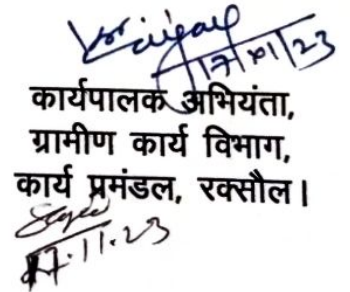 17/11/23
कार्यपालक अभियंता,
ग्रामीण कार्य विभाग,
कार्य प्रमंडल, रक्सौल।
17.11.23